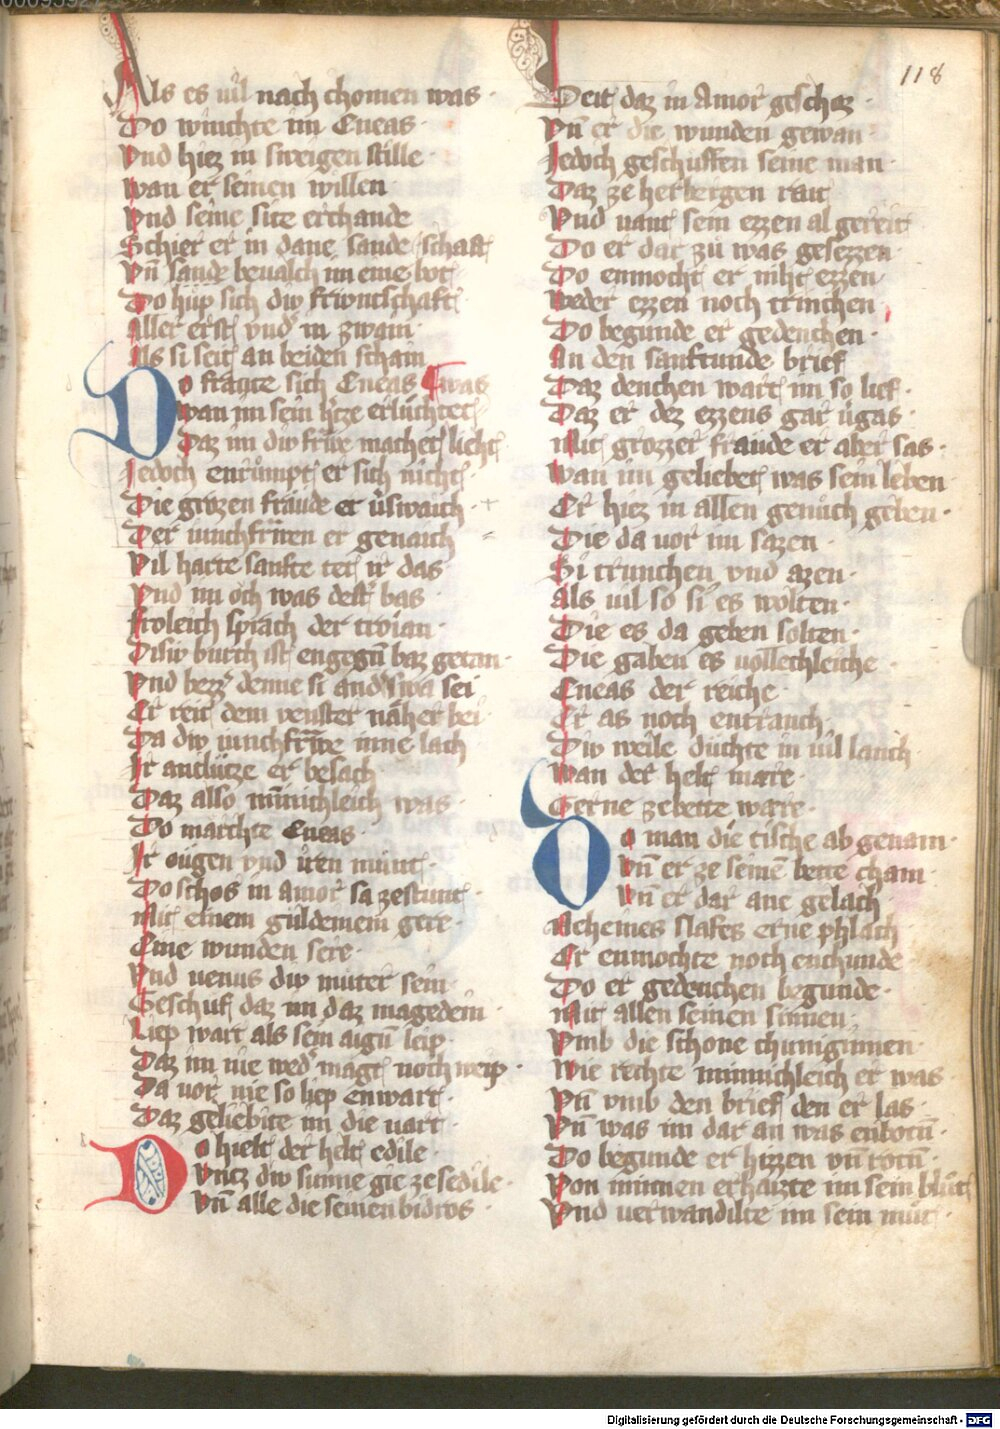 118
Als es uil nach chomen was ·
Do winchte im Eneas ·
Vnd hiez in sweigen stille ·
wan er seinen willen
Vnd seine site erchande
Schier er in dane sande schaft
Vn̄ sande beualch im eine bot
Do hůp sich diw friwntschaft ·
Aller erst vnd' in zwain ·
Als si seit an beiden schain
Do fraute sich Eneas was
wan im sein h'rze erlůchtet
Daz im diw frǒe machet licht
Jedoch enrůmpt er sich nicht ·
Die grozen fraude er ůswaich ·
Der iunchfrǒen er genaich
Vil harte sanfte tet ir das ·
Vnd im och was dest bas ·
froleich sprach der troian ·
Disiw burch ist engegū baz getan ·
Vnd bezz' denne si and' swa sei
Er reit dem venster näher bei ·
Da diw iunchfrǒe inne lach
Ir antlůtze er besach ·
Daz also minnichleich was ·
Do marchte Eneas ·
Ir ǒugen vnd iren munt ·
Do schos in Amor sa zestunt ·
Mit einem guldemein gere ·
Eine wunden sere ·
Vnd uenus diw můter sein ·
Geschuf daz im daz magedein ·
Liep wart als sein aigū leip ·
Daz im nie wed' magt noch weip ·
Da uor nie so liep enwart ·
Daz geliebite im die uart ·
Do hielt der helt edile ·
Vntz diw sunne gie zesedile ·
Vn̄ alle die seinen bidros ·
Seit daz in Amor geschoz ·
Vn̄ er die wunden gewan ·
Jedoch geschuffen seine man ·
Daz ze herbergen rait
Vnd uant sein ezzen al gereit
Do er dar zů was gesezzen ·
Do enmocht er niht ezzen ·
Weder ezzen noch trinchen
Do begunde er gedenchen ·
An den sanftunde brief
Daz denchen wart im so lief ·
Daz er dez ezzens gar ůgas ·
Mit grozzer fraude er aber sas ·
Wan im geliebet was sein leben
Er hiez in allen genůch geben ·
Die da uor im sazen ·
Si trunchen vnd azen ·
Als uil so si es wolten ·
Die es da geben solten ·
Die gaben es uollechleiche ·
Eneas der reiche ·
Er as noch entranch ·
Diw weile důchte in uil lanch
Wan der helt mare ·
Gerne zebette ware ·
Do man die tische ab genam ·
Vn̄ er ze seinē bette cham ·
Vn̄ er dar ane gelach ·
Necheines slafes erne phlach
Er enmochte noch enchunde ·
Do er gedenchen begunde ·
Mit allen seinen sinnen ·
Vmb die schone chuniginnen ·
Wie rechte minnichleich er was ·
Vn̄ vmb den brief den er las ·
Vn̄ was im dar an was enbotū ·
Do begunde er hizzen vn̄ rotū ·
Von minnen erhaizte im sein blůt
Vnd uerwandilte im sein můt ·
Digitalisierung gefördert durch die Deutsche Forschungsgemeinschaft - DFG